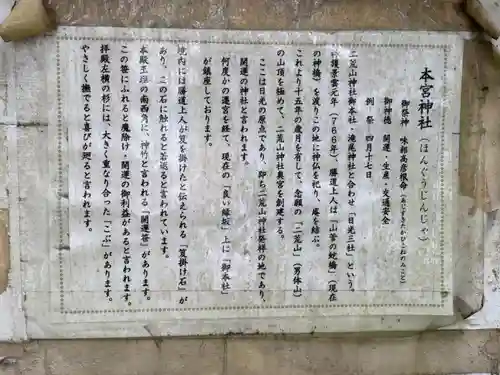 本宮神社(ほんぐうじんじゃ)
御祭神 味耜高彦根命(あじすきたかひこねのみこと)
御神徳 開運・生産・交通安全
例祭 四月十七日
二荒山神社御本社、滝尾神社と合わせ「日光三社」という。
神護景雲元年(766年)、勝道上人は「山菅の蛇橋」(現在
の神橋)を渡りこの地に神仏を祀り、庵を結ぶ。
これより十五年の歳月を有して、念願の「二荒山」(男体山)
の山頂を極めて、二荒山神社奥宮を創建する。
ここは日光の原点であり、即ち二荒山神社発祥の地であり、
開運の神社と言われます。
何度かの遷宮を経て、現在の「良い縁坂」上に「御本社」
が鎮座しております。
境内には勝道上人が笈を掛けたと伝えられる「笈掛け石」が
あり、この石に触れると若返ると言われています。
本殿玉垣の南西角に、神竹と言われる「開運笹」があります。
この笹にふれると魔除け・開運の御利益があると言われます。
拝殿左横の杉には、大きく重なり合った「こぶ」があります。
やさしく撫でると喜びが廻ると言われます。